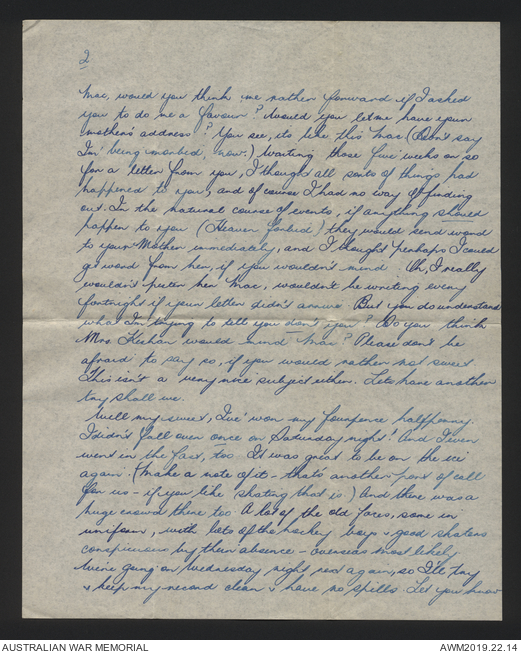 2
Mac, would you think me rather forward if I asked
you to do me a favour? Would you let me have your
mother's address? You see, its like this Mac (Don't say
I'm being morbid, now.) Waiting those five weeks or so
for a letter from you, I thought all sorts of things had
happened to you, and of course I had no way of finding
out. In the natural course of events, if anything should
happen to you (Heaven forbid) they would send word
to your Mother immediately, and I thought perhaps I could
get word from her, if you wouldn't mind. Oh, I really
wouldn't pester her Mac, wouldn't be writing every
fortnight if your letter didn't arrive. But you do understand
what I'm trying to tell you don't you? Do you think
Mrs would mind Mac? Please don't be
afraid to say so, if you would rather not sweet
This isn't a very nice subject either. Lets have another
try shall we.
Well my sweet, I've won my fourpence halfpenny.
I didn't fall over once on Saturday night. And I even
went in the fast, too. It was great to be on the ice
again. (Make a note of it - that's another port of call
for us - if you like skating that is.) And there was a
huge crowd there too. A lot of the old faces, some in
uniform, with lots of the hockey boys & good skaters
conspicuous by their absence - overseas most likely.
We're going on Wednesday night next again, so I'll try
& keep my record clean & have no spills. Let you know
AUSTRALIAN WAR MEMORIAL
AWM2019.22.14